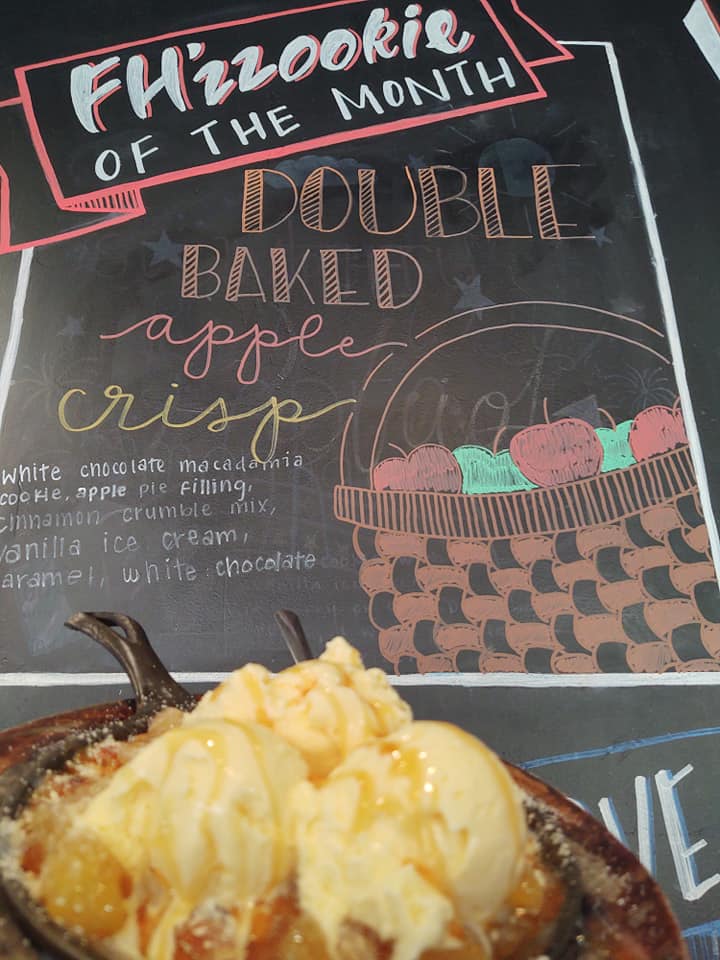 FH'zzookie
OF THE MONTH
DOUBLE
BAKED
apple
crisp
white chocolate macadamia
cookie, apple pie filling,
cinnamon crumble mix,
vanilla ice cream,
aramel, white chocolate
VE